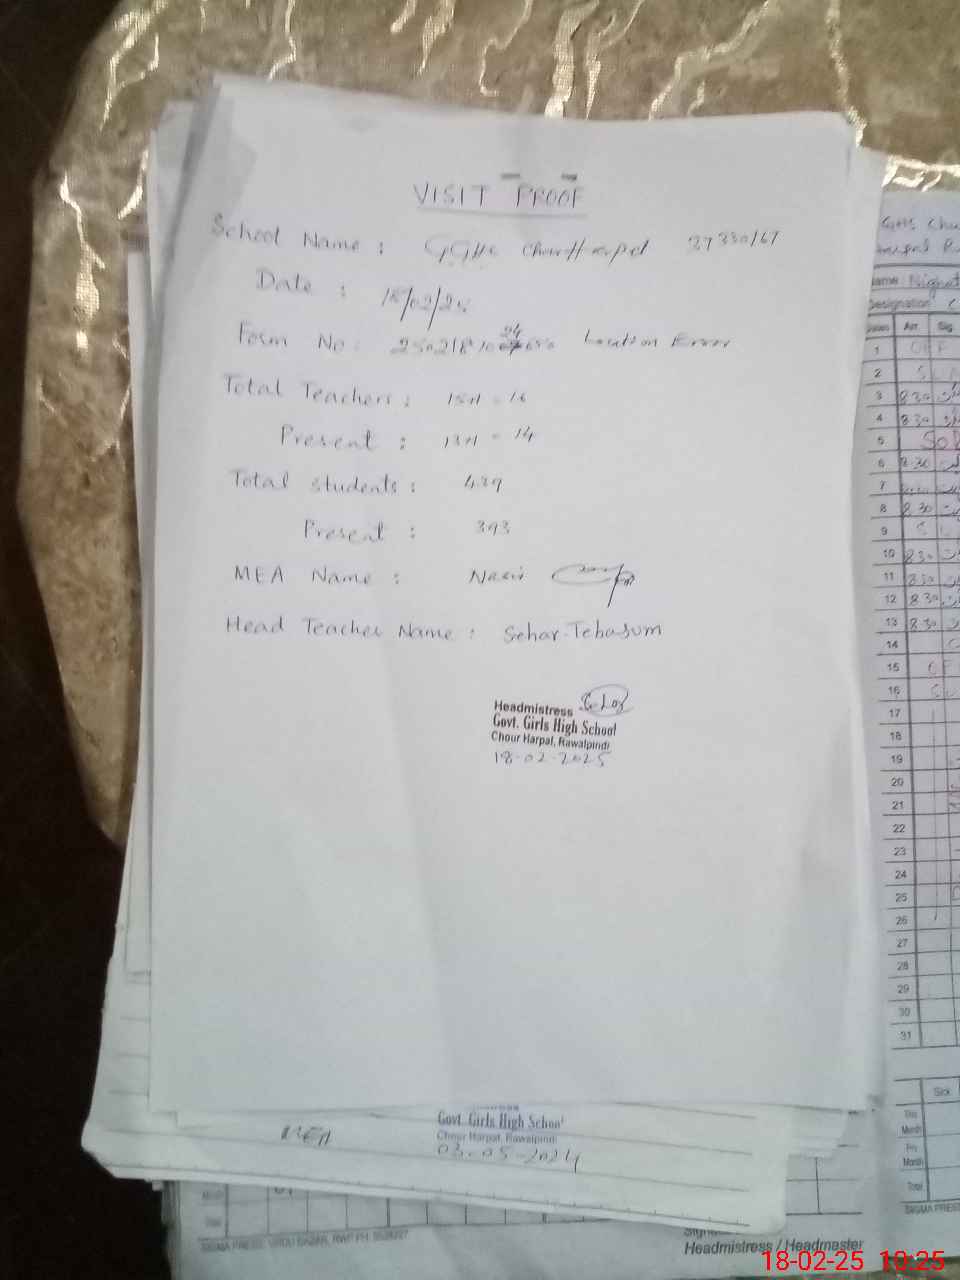 VISIT PROOF
School Name : GGHS Chour Harpal 37330167
Date : 18/02/25
Form No: Location Error
Total Teachers : 15+1 = 16
Present : 13+1 = 14
Total students : 439
Present : 393
MEA Name : Nasir
Head Teacher Name : Sehar Tebasum
Headmistress
Govt. Girls High School
Chour Harpal, Rawalpindi
18-02-2025
Govt. Girls High School
Chour Harpal, Rawalpindi
MEA
03-05-2024
Month
Total
SIGMA PRESS URDU BAZAR, RWP PH:
Headmistress / Headmaster
GHS
Designation
Dates Arr. Sig.
1 OFF
2
3 8.30
4 8.30
5
6 8.30
7
8 8.30
9
10 8.30
11 8.30
12 8.30
13 8.30
14
15
16
17
18
19
20
21
22
23
24
25
26
27
28
29
30
31
Sick
This
Month
Month
Total
SIGMA PRESS
18-02-25 10:25